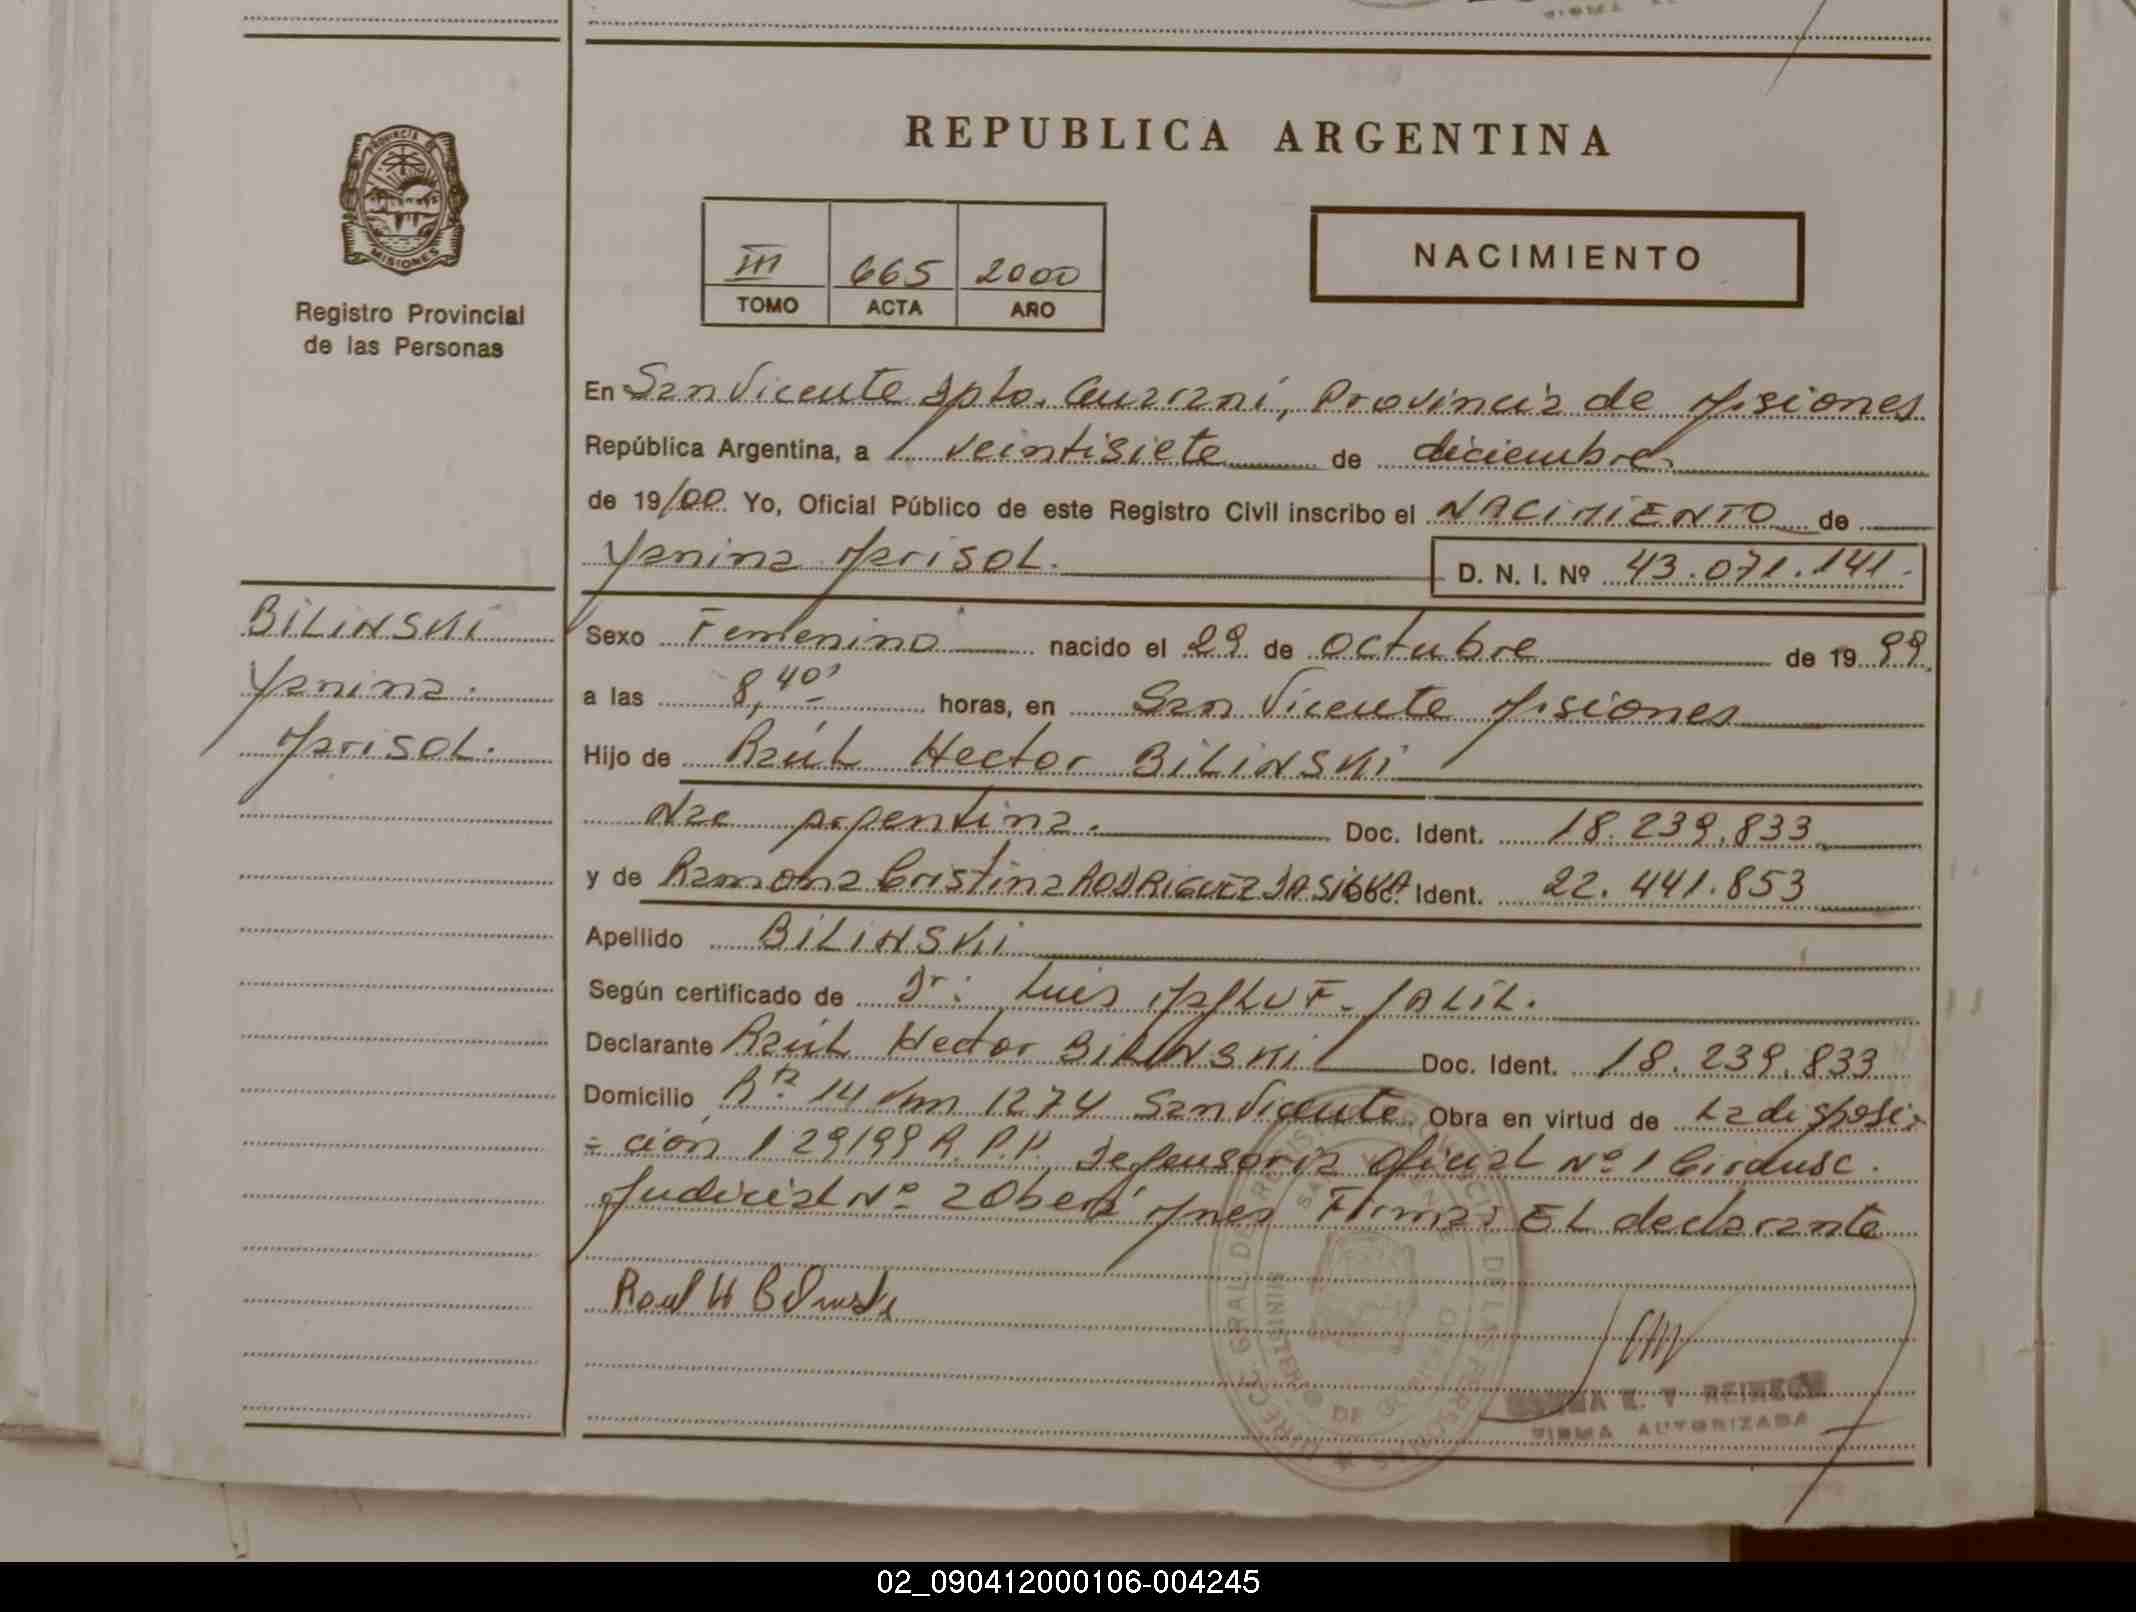 REPUBLICA ARGENTINA
PROVINCIA DE MISIONES
Registro Provincial
de las Personas
III 665 2000
TOMO ACTA AÑO
NACIMIENTO
En San Vicente Dpto. Guaraní, Provincia de Misiones
República Argentina, a veintisiete de diciembre
de 19/00 Yo, Oficial Público de este Registro Civil inscribo el NACIMIENTO de
Yanina Marisol. D. N. I. Nº 43.071.141.
BILINSKI
Yanina
Marisol.
Sexo Femenino nacido el 29 de octubre de 1999.
a las 8,40' horas, en San Vicente Misiones
Hijo de Raúl Hector BILINSKI
Nac Argentina. Doc. Ident. 18.239.833
y de Ramona Cristina RODRIGUEZ DA SILVA Doc. Ident. 22.441.853
Apellido BILINSKI
Según certificado de Dr: Luis F. JALIL.
Declarante Raúl Hector BILINSKI Doc. Ident. 18.239.833
Domicilio Rta 14 Km 1274 San Vicente Obra en virtud de La disposi-
- ción 129/99 R.P.P. Defensoria Oficial Nº 1 Circunsc.
Judicial Nº 2 Oberá Mnes Firma: El declarante
Raul H Bilinski
DIRECC. GRAL DE REGISTRO PROVINCIAL DE LAS PERSONAS
SAN VICENTE
MINISTERIO DE GOBIERNO
REINECH
FIRMA AUTORIZADA
02_090412000106-004245